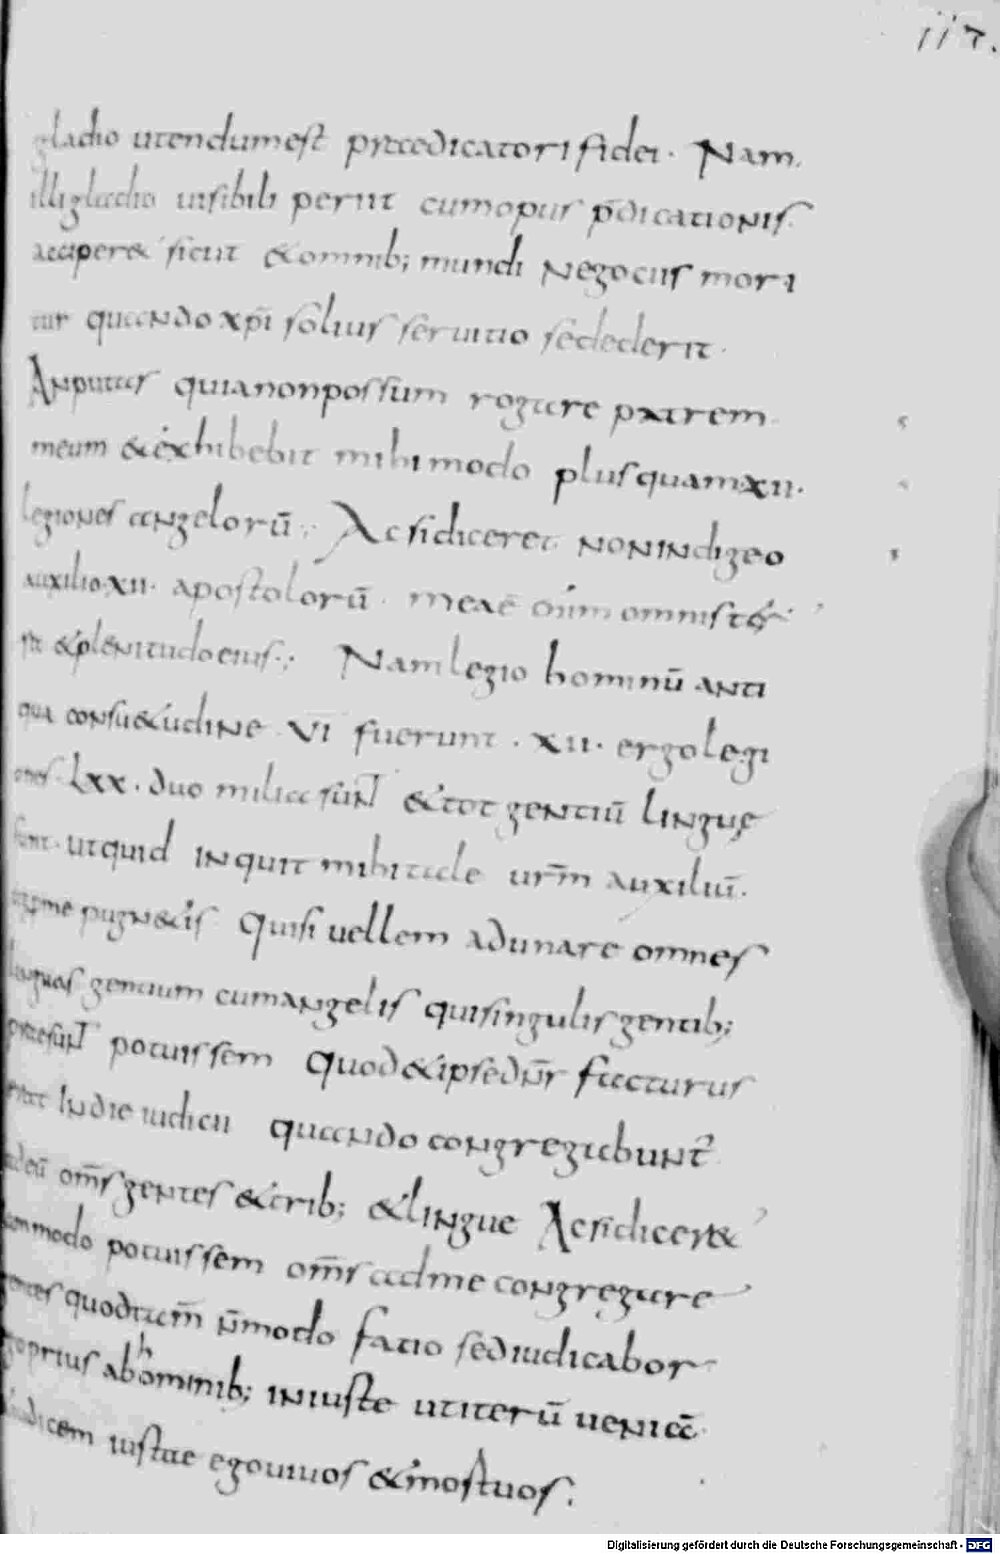 117.
gladio utendum est prædicatori fidei. Nam
illi gladio uisibili periit cum opus p̄dicationis
acciper& sicut & omnib; mundi negociis mori
tur quando xp̄i solius seruitio se dederit.
An putas quia non possum rogare patrem
meum & exhibebit mihi modo plus quam xii.
legiones angelorū:, Ac si diceret non indigeo
auxilio xii. apostolorū. meae
&plenitudo eius:, Nam legio hominū anti
qua consu&udine VI fuerunt. xii. ergo legi
ones. Lxx. duo milia sunt & tot gentiū linguę
sunt. ut quid inquit mihi tale ur̄m auxiliū.
pugn&is Qui si uellem adunare omnes
linguas gentium cum angelis qui singulis gentib;
præsunt potuissem Quod & ipse dn̄r facturus
erit In die iudicii quando congregabunt᷑
ad eū om̄s gentes & trib; & lingue Ac si dicer&
non modo potuissem om̄s ad me congregare
gentes quod tam̄ n̄ modo facio sed iudicabor
prius ab hominib; iniuste ut iterū ueniā
iudicem iustae ego uiuos & mortuos.
Digitalisierung gefördert durch die Deutsche Forschungsgemeinschaft - DFG